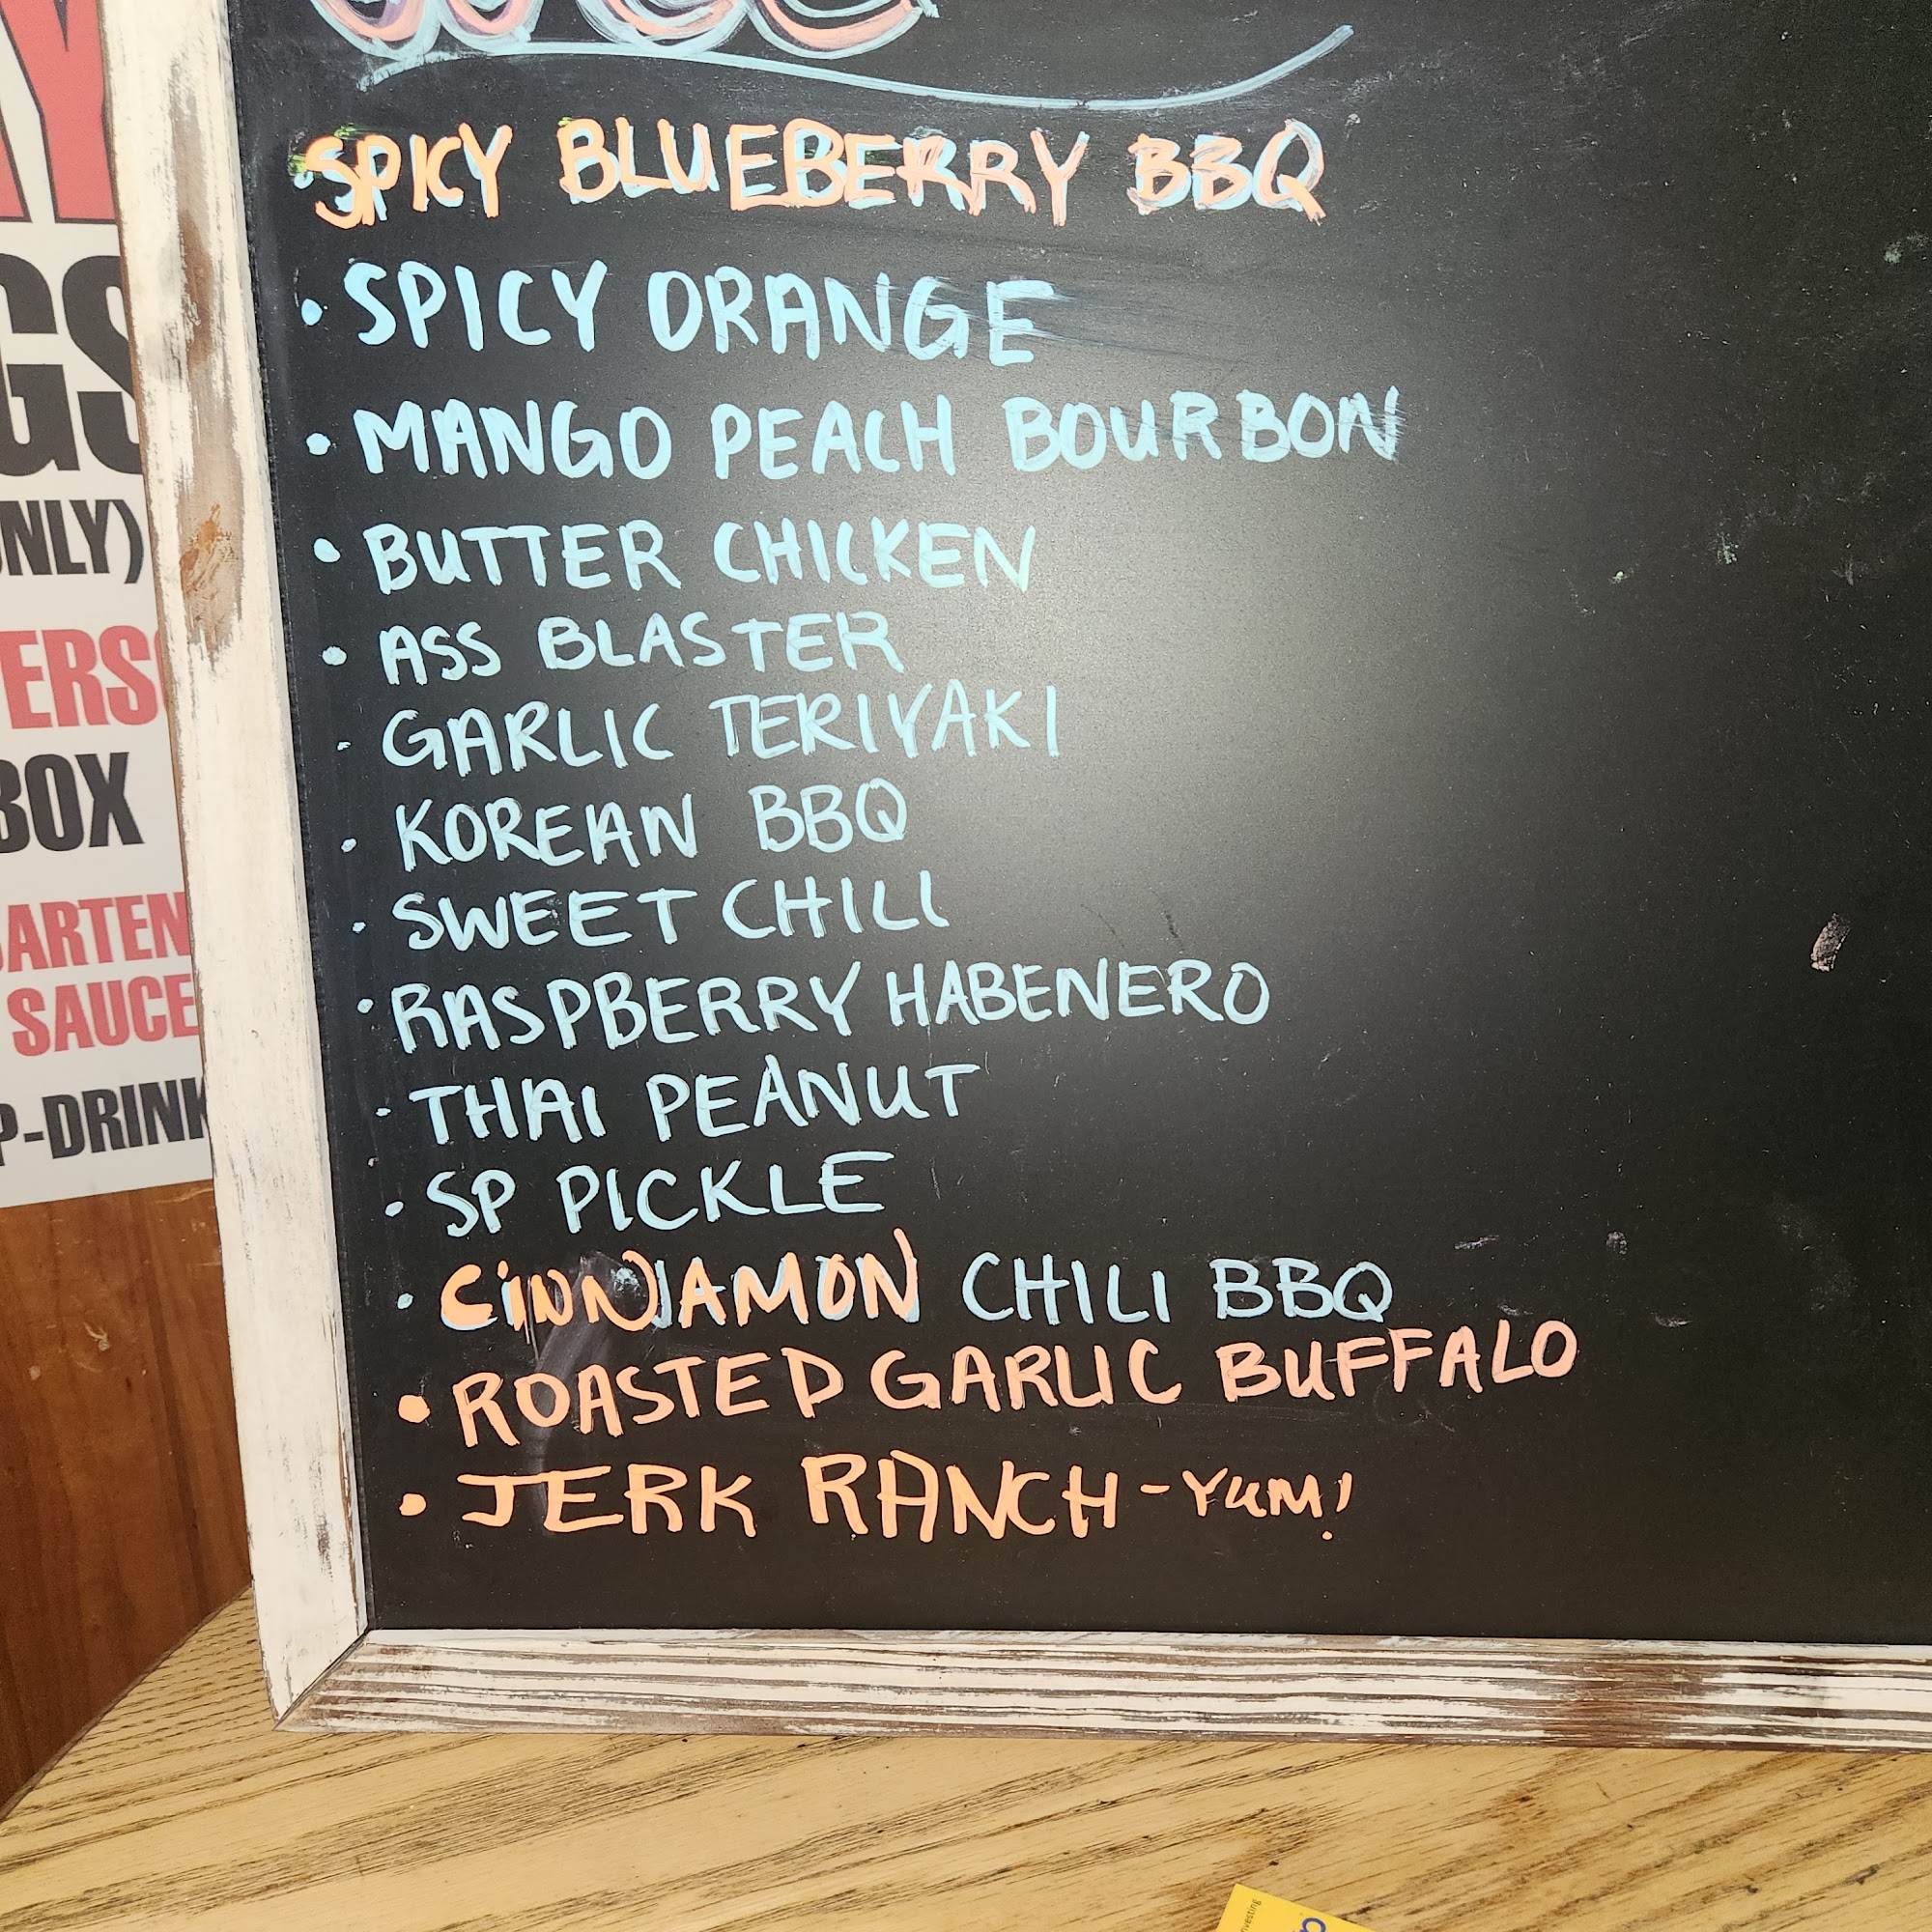 SPICY BLUEBERRY BBQ
• SPICY ORANGE
• MANGO PEACH BOURBON
• BUTTER CHICKEN
• ASS BLASTER
• GARLIC TERIYAKI
• KOREAN BBQ
• SWEET CHILI
• RASPBERRY HABENERO
• THAI PEANUT
• SP PICKLE
• CINNAMON CHILI BBQ
• ROASTED GARLIC BUFFALO
• JERK RANCH - YUM!
GS
ONLY)
ERS
BOX
ARTEN
SAUCE
P-DRINK